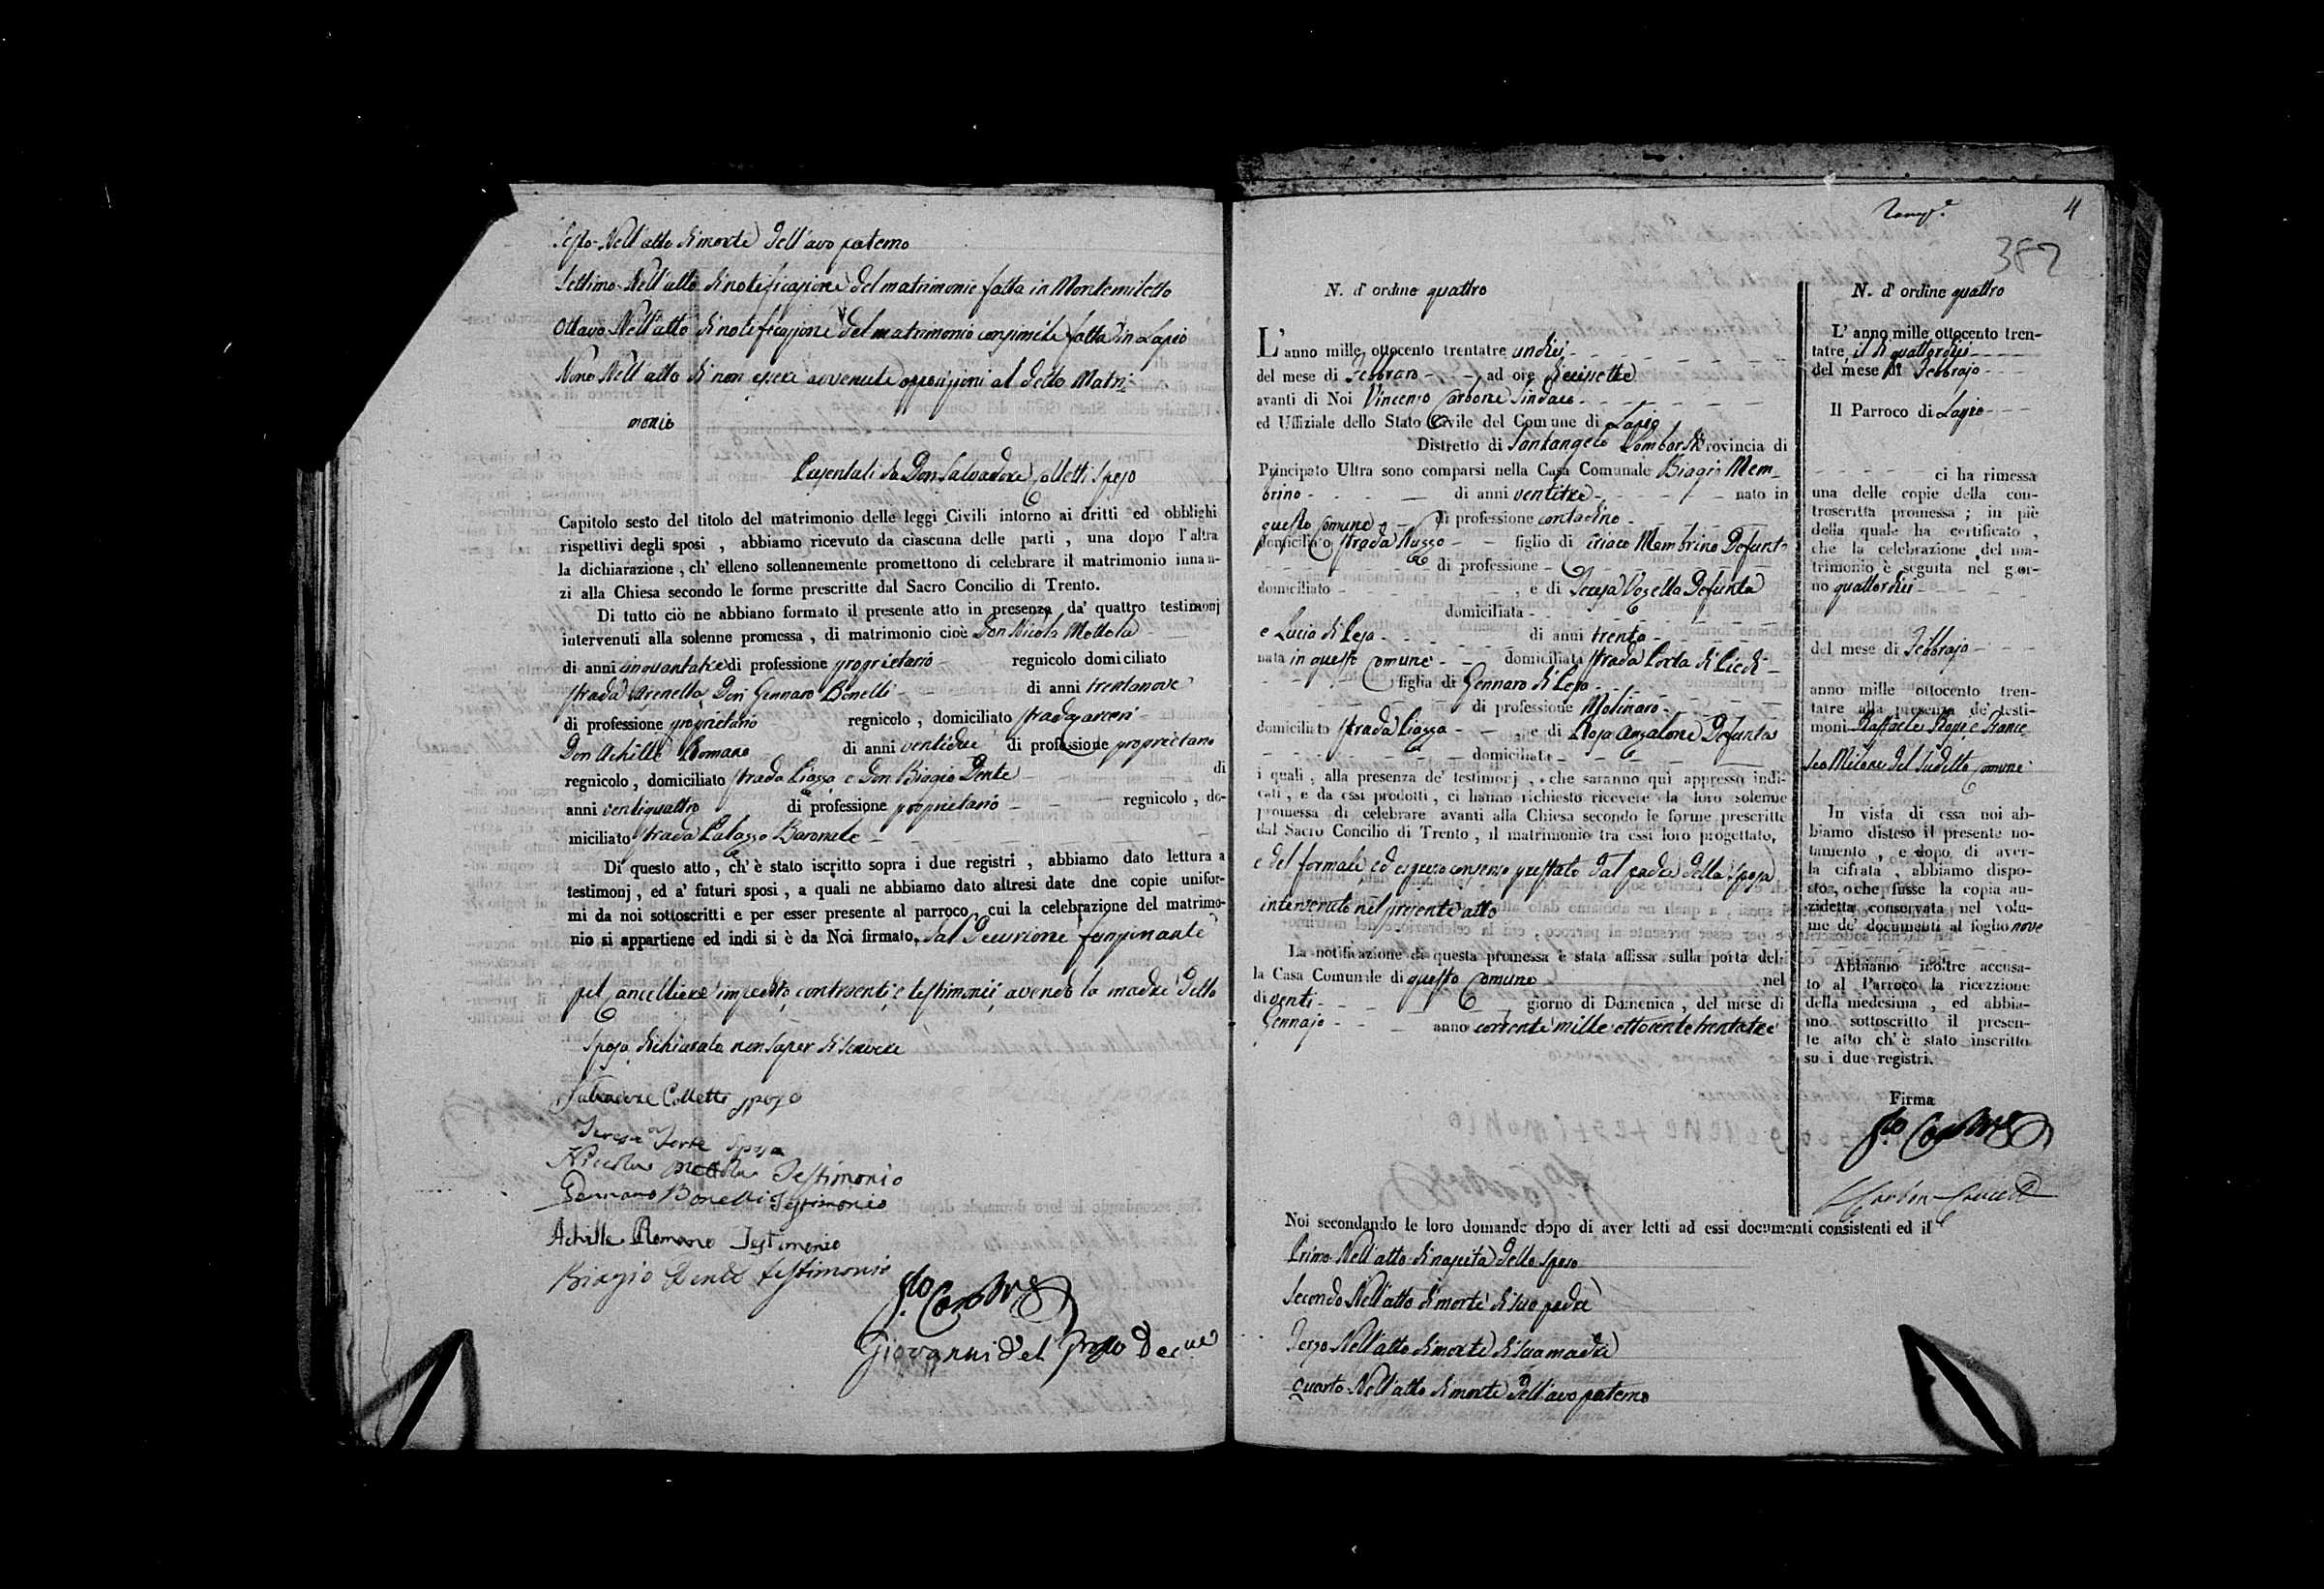 Sesto Nell'atto di morte dell'avo paterno
Settimo Nell'atto di notificazione del matrimonio fatta in Montemiletto
Ottavo Nell'atto di notificazione del matrimonio consimile fatta in Lapio
Nono Nell'atto di non essere avvenute opposizioni al detto Matri-
monio
Presentati da Don Salvadore Colletti Sposo
Capitolo sesto del titolo del matrimonio delle leggi Civili intorno ai dritti ed obblighi
rispettivi degli sposi , abbiamo ricevuto da ciascuna delle parti , una dopo l'altra
la dichiarazione , ch' elleno sollennemente promettono di celebrare il matrimonio innan-
zi alla Chiesa secondo le forme prescritte dal Sacro Concilio di Trento.
Di tutto ciò ne abbiano formato il presente atto in presenza da' quattro testimonj
intervenuti alla solenne promessa , di matrimonio cioè Don Nicola Mottola
di anni cinquantatre di professione proprietario regnicolo domiciliato
strada Arenella, Don Gennaro Bonelli di anni trentanove
di professione proprietario regnicolo , domiciliato strada carceri
Don Achille Romano di anni ventidue di professione proprietario
regnicolo , domiciliato strada Piazza e Don Biagio Dente di
anni ventiquattro di professione proprietario regnicolo , do-
miciliato strada Palazzo Baronale
Di questo atto , ch' è stato iscritto sopra i due registri , abbiamo dato lettura a
testimonj , ed a' futuri sposi , a quali ne abbiamo dato altresi date dne copie unifor-
mi da noi sottoscritti e per esser presente al parroco, cui la celebrazione del matrimo-
nio si appartiene ed indi si è da Noi firmato, dal Decurione funzionante
pel Cancelliere impedito, contraenti, e testimonii, avendo la madre dello
sposo dichiarato non saper di scrivere
Salvadore Colletti sposo
Teresa Forte Sposa
Niccola Mottola Testimonio
Gennaro Bonelli Testimonio
Achille Romano Testimonio
Biagio Dente testimonio
Giovanni del Pozzo Dec.ne
4
382
N. d' ordine quattro
L' anno mille ottocento trentatre undici
del mese di Febbraro ad ore diecisette
avanti di Noi Vincenzo Carbone Sindaco
ed Uffiziale dello Stato Civile del Comune di Lapio
Distretto di Santangelo Lombardi Provincia di
Principato Ultra sono comparsi nella Casa Comunale Biagio Mem-
brino di anni ventitre nato in
questo Comune di professione contadino
domiciliato strada figlio di Ciriaco Membrino Defunto
di professione
domiciliato , e di Teresa Defunta
domiciliata
e Lucia di Peso di anni trenta
nata in questo Comune domiciliata strada Porta di Piedi
figlia di Gennaro di Peso
di professione Molinaro
domiciliato strada Piazza , e di Rosa Anzalone Defunta
domiciliata
i quali , alla presenza de' testimonj , che saranno qui appresso indi-
cati , e da essi prodotti , ci hanno richiesto ricevere la loro solenne
promessa di celebrare avanti alla Chiesa secondo le forme prescritte
dal Sacro Concilio di Trento , il matrimonio tra essi loro progettato,
e del formale ed espresso consenso prestato dal padre della sposa
intervenuto nel presente atto
La notificazione di questa promessa è stata affissa sulla porta del-
la Casa Comunale di questo Comune nel
di venti giorno di Domenica , del mese di
Gennajo anno corrente mille ottocento trentatre
N. d' ordine quattro
L' anno mille ottocento tren-
tatre, il di quattordici
del mese di Febbrajo
Il Parroco di Lapio
ci ha rimessa
una delle copie della con-
troscritta promessa ; in piè
della quale ha certificato ,
che la celebrazione del ma-
trimonio è seguita nel gior-
no quattordici
del mese di Febbrajo
anno mille ottocento tren-
tatre alla presenza de' testi-
moni Raffaele e France-
sco Milone del sudetto Comune
In vista di essa noi ab-
biamo disteso il presente no-
tamento , e dopo di aver-
la cifrata , abbiamo dispo-
sto, che fusse la copia an-
zidetta conservata nel volu-
me de' documenti al foglio nove
Abbiamo inoltre accusa-
to al Parroco la ricezzione
della medesima , ed abbia-
mo sottoscritto il presen-
te atto ch' è stato inscritto
su i due registri.
Firma
Noi secondando le loro domande dopo di aver letti ad essi documenti consistenti ed il
Primo Nell'atto di nascita dello sposo
Secondo Nell'atto di morte di suo padre
Terzo Nell'atto di morte di sua madre
Quarto Nell'atto di morte dell'avo paterno